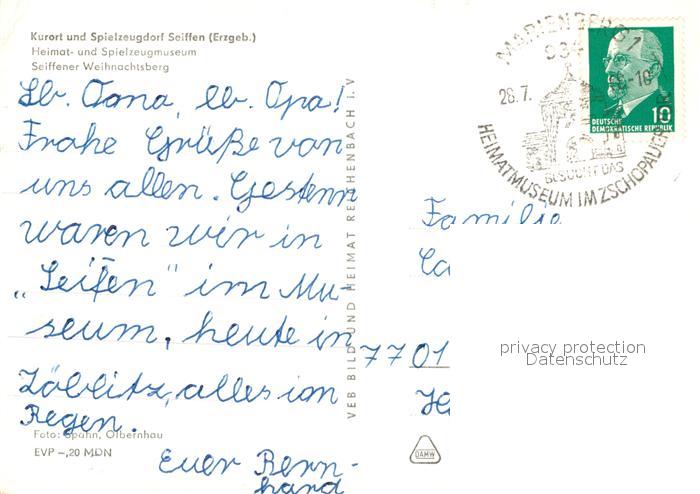 Kurort und Spielzeugdorf Seiffen (Erzgeb.)
Heimat- und Spielzeugmuseum
Seiffener Weihnachtsberg
Lb. Oma, lb. Opa!
Frohe Grüße von
uns allen. Gestern
waren wir in
„Seifen" im Mu-
seum, heute in
Zöblitz, alles im
Regen.
Euer Bern-
hard
Foto: Spahn, Olbernhau
EVP –,20 MDN
VEB BILD UND HEIMAT REICHENBACH I. V
MARIENBERG 1
934
28.7.
-10
BESUCHT DAS
HEIMATMUSEUM IM ZSCHOPAUER
10
DEUTSCHE
DEMOKRATISCHE REPUBLIK
Familie
7701
DAMW
privacy protection
Datenschutz